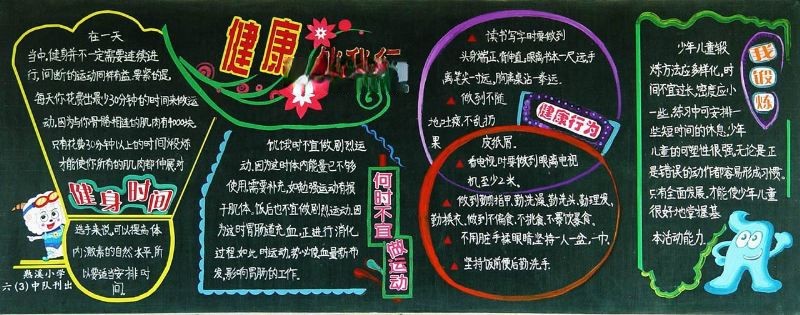 健康
在一天
当中,健身并不一定需要连续进
行,间断的运动同样有益,要紧的是,
每天你花费出最少30分钟的时间来做运
动,因为与你骨骼相连的肌肉有4000块,
只有花费30分钟以上的时间锻炼
才能使你所有的肌肉都伸展对
健身时间
选手来说,可以提高体
内激素的自然水平,所
以要适当安排时
间。
燕溪小学
六(3)中队刊出
饥饿时不宜做剧烈运
动,因为这时体内能量已不够
使用,需要补充,如勉强运动有损
于肌体。饭后也不宜做剧烈运动,因
为这时胃肠道充血,正进行消化
过程,如此时运动,势必使血量新布
发,影响胃肠的工作。
何时不宜
做运动
▲读书写字时要做到
头身端正,背伸直,眼离书本一尺远,手
离笔尖一寸远,胸离桌沿一拳远。
▲做到不随
地吐痰,不乱扔
果皮纸屑。
健康行为
▲看电视时要做到眼离电视
机至少2米。
▲做到勤剪指甲,勤洗澡,勤洗头,勤理发,
勤换衣,做到不偏食,不挑食,不暴饮暴食。
▲不用脏手揉眼睛,坚持一人一盆,一巾。
▲坚持饭前便后勤洗手。
少年儿童锻
炼方法应多样化,时
间不宜过长,密度应小
一些,练习中可安排一
些短时间的休息,少年
儿童的可塑性很强,无论是正
是错误的动作都容易形成习惯。
只有全面发展,才能使少年儿童
很好地掌握基
本活动能力。
我锻炼